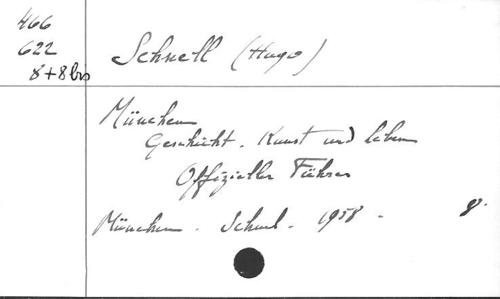 466
622
8+8bis
Schnell (Hugo)
München
Geschicht. Kunst und leben
Offizieller Führer
München. Schnel. 1958.
8.